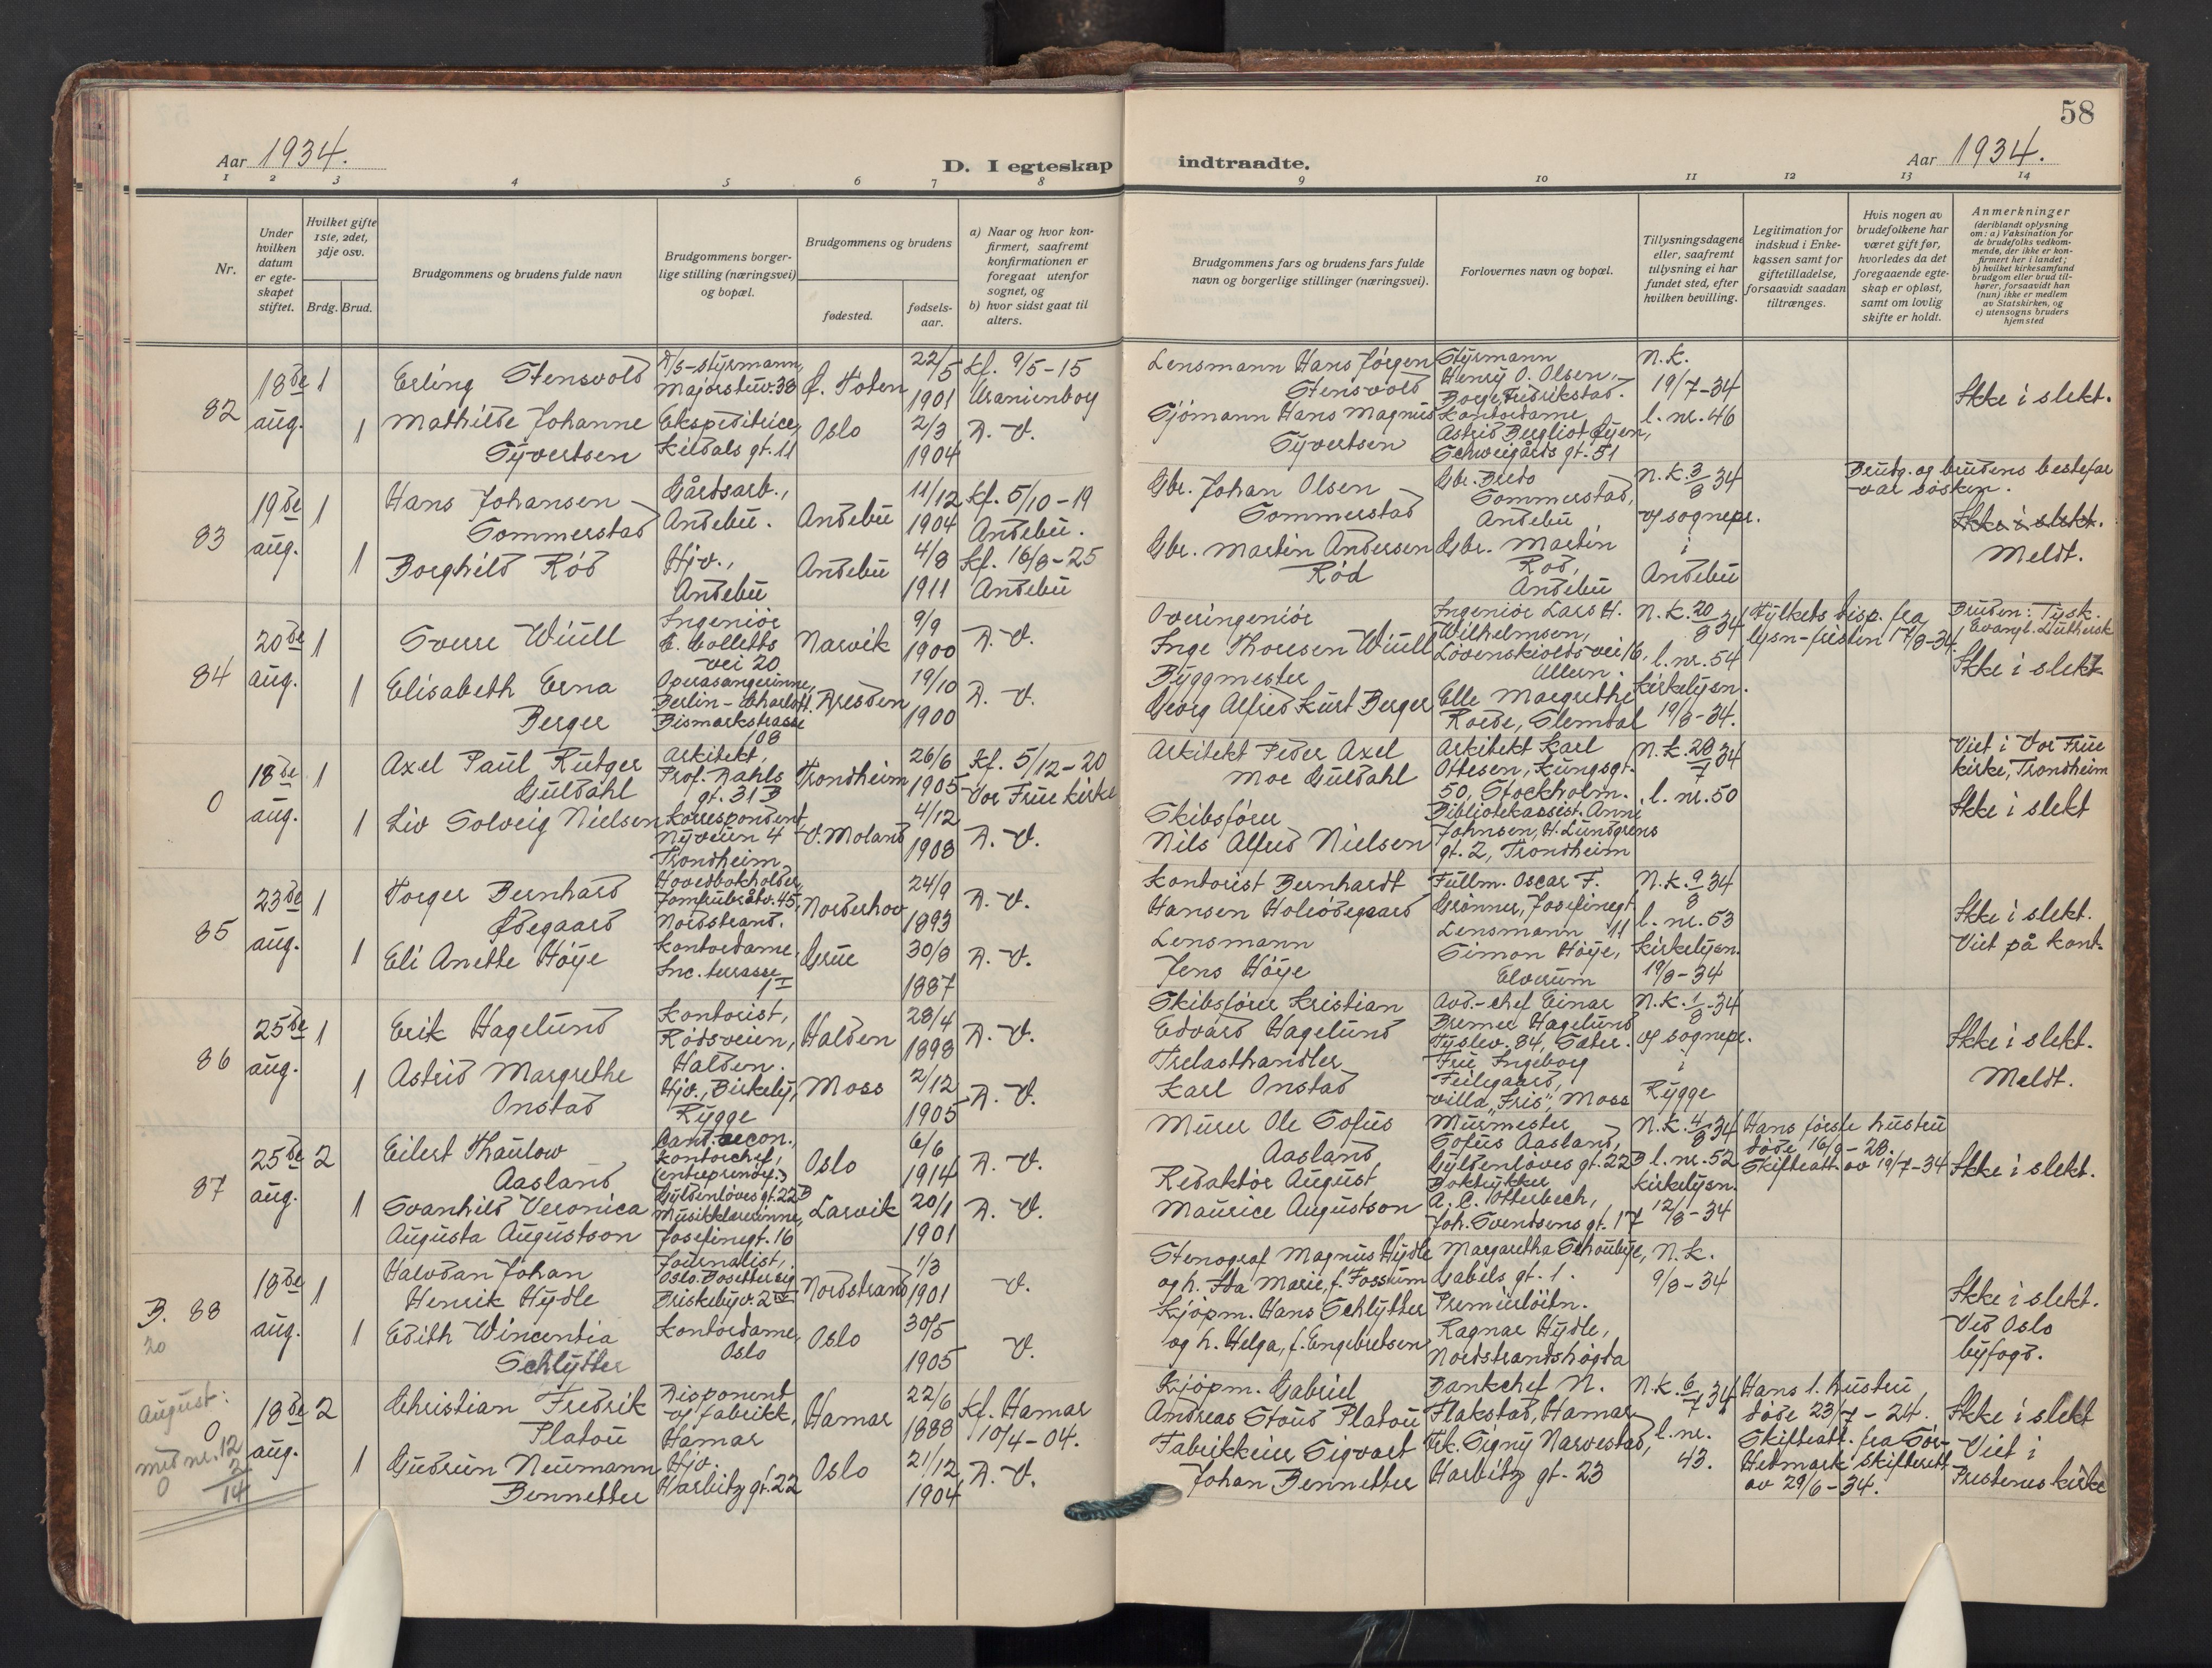 58
Aar 1934.
D. I egteskap indtraadte.
Aar 1934.
1 2 3 4 5 6 7 8 9 10 11 12 13 14
Nr.
Under hvilken datum er egteskapet stiftet.
Hvilket gifte 1ste, 2det, 3dje osv.
Brdg. Brud.
Brudgommens og brudens fulde navn
Brudgommens borgerlige stilling (næringsvei) og bopæl.
Brudgommens og brudens
fødested.
fødselsaar.
a) Naar og hvor konfirmert, saafremt konfirmationen er foregaat utenfor sognet, og
b) hvor sidst gaat til alters.
Brudgommens fars og brudens fars fulde navn og borgerlige stillinger (næringsvei).
Forlovernes navn og bopæl.
Tillysningsdagene eller, saafremt tillysning ei har fundet sted, efter hvilken bevilling.
Legitimation for indskud i Enkekassen samt for giftetilladelse, forsaavidt saadan tiltrænges.
Hvis nogen av brudefolkene har været gift før, hvorledes da det foregaaende egteskap er opløst, samt om lovlig skifte er holdt.
Anmerkninger
(deriblandt oplysning om: a) Vaksination for de brudefolks vedkommende, der ikke er konfirmert her i landet;
b) hvilket kirkesamfund brudgom eller brud tilhører, forsaavidt han (hun) ikke er medlem av Statskirken, og
c) utensogns bruders hjemsted
82
18de aug.
1
Erling Stensvold
D/s-styrmann, Majorstuv. 38
Ø. Toten
22/5 1901
Kf. 9/5-15 Uranienborg
Lensmann Hans Jørgen Stensvold
Styrmann Henry O. Olsen, Borge, Fredrikstad.
N.K. 19/7-34
l. nr. 46
Ikke i slekt.
1
Mathilde Johanne Syvertsen
Ekspeditrice, Kirdals gt. 11
Oslo
2/3 1904
D. V.
Sjømann Hans Magnus Syvertsen
Kontordame Astrid Bergliot Øyen, Schweigårds gt. 51
83
19de aug.
1
Hans Johansen Sommerstad
Gårdsarb., Andebu.
Andebu
11/12 1904
Kf. 5/10-19 Andebu.
Gbr. Johan Olsen Sommerstad
Gbr. Bredo Sommerstad, Andebu
N.K. 3/8 34
av sognepr. i Andebu
Brudg. og brudens bestefar var søsken.
Ikke i slekt.
Meldt.
1
Borghild Rød
Hjv., Andebu
Andebu
4/8 1911
Kf. 16/8-25 Andebu
Gbr. Martin Andersen Rød
Gbr. Martin Rød, Andebu
84
20de aug.
1
Sverre Wüll
Ingeniør C. Colletts vei 20
Narvik
9/9 1900
D. V.
Overingeniør Inge Thoresen Wüll
Ingeniør Lars H. Wilhelmsen, Løvenskiolds vei 16, Ullern.
N.K. 20/8 34
l. nr. 54
Kirkelysn. 19/8-34.
Fylkets disp. fra lysn-fristen 17/8-34.
Bruden: Tysk. Evangl. Luthersk
Ikke i slekt
1
Elisabeth Erna Berger
Operasangerinne, Berlin-Charlott. Bismarkstrasse 108
Dresden
19/10 1900
D. V.
Byggmester Georg Alfred Kurt Berger
Elle Margrethe Roede, Slemdal
0
18de aug.
1
Axel Paul Rütger Guldahl
Arkitekt, Prof. Dahls gt. 31 B
Trondheim
26/6 1905
Kf. 5/12-20 Vor Frue Kirke
Arkitekt Peder Axel Moe Guldahl
Arkitekt Karl Ottesen, Kungsgt. 50, Stockholm.
N.K. 20/7 34
l. nr. 50
Viet i Vor Frue kirke, Trondheim
Ikke i slekt
1
Liv Solveig Nielsen
Korrespondent, Nyveien 4 Trondheim
V. Moland
4/12 1908
D. V.
Skibsfører Nils Alfred Nielsen
Bibliotekassist. Anni Johnsen, H. Lundgrens gt. 2, Trondheim
85
23de aug.
1
Torger Bernhard Ødegaard
Hovedbokholder, Jomfrubråtv. 45, Nordstrand.
Norderhov
24/9 1893
D. V.
Kontorist Bernhardt Hansen Holeødegaard
Fullm. Oscar F. Grønner, Josefinegt. 11
N.K. 9/8 34
l. nr. 53
Kirkelysn. 19/8-34
Ikke i slekt.
Viet på kont.
1
Eli Anette Høye
Kontordame, Inc. terrasse 1 I
Grue
30/8 1887
D. V.
Lensmann Jens Høye
Lensmann Simon Høye, Elverum
86
25de aug.
1
Erik Hagelund
Kontorist, Rødsveien, Halden.
Halden
28/4 1898
D. V.
Skibsfører Kristian Edvard Hagelund
Avd.-chef Einar Bremer Hagelund Tyslev. 84, Sæter.
N.K. 1/8-34
av sognepr. i Rygge
Ikke i slekt.
Meldt.
1
Astrid Margrethe Onstad
Hjv., Birkely, Rygge
Moss
2/12 1905
D. V.
Trelasthandler Karl Onstad
Frue Ingeborg Feilegaard, villa „Fris", Moss
87
25de aug.
2
Eilert Thaulow Aasland
Cand. oecon., Kontorchef, (entreprenør.) Gyldenløves gt. 22 B
Oslo
6/6 1914
D. V.
Murer Ole Sofus Aasland
Murmester Sofus Aasland, Gyldenløves gt. 22 B
N.K. 4/8 34
l. nr. 52
Kirkelysn. 12/8-34
Hans første hustru døde 16/9-28.
Skifteatt. av 19/7-34
Ikke i slekt.
1
Svanhild Veronica Augusta Augustson
Musikklærerinne, Josefinegt. 16
Larvik
20/1 1901
D. V.
Redaktør August Maurice Augustson
Boktrykker A. C. Otterbech, Joh. Svendsens gt. 17
B. 88
20
18de aug.
1
Halvdan Johan Henrik Hydle
Journalist, Oslo. Bosetter sig Briskebyv. 2 IV
Nordstrand
1/3 1901
V.
Stenograf Magnus Hydle og h. Ida Marie, f. Fossum
Margaretha Schoubye, Gabels gt. 1.
N.K. 9/8-34
Ikke i slekt.
Ved Oslo byfogd.
1
Edith Wincentia Schlytter
Kontordame, Oslo
Oslo
30/5 1905
V.
Kjøpm. Hans Schlytter og h. Helga, f. Engebretsen
Premierløitn. Ragnar Hydle, Nordstrandshøgda
August:
0
med nr. 12
0 2
14
18de aug.
2
Christian Fredrik Platou
Disponent av fabrikk, Hamar
Hamar
22/6 1888
Kf. Hamar 10/4-04.
Kjøpm. Gabriel Andreas Stoud Platou
Bankchef N. Flakstad, Hamar
N.K. 6/7 34
l. nr. 43.
Hans 1. hustru døde 23/7-24.
Skifteatt. fra Sør-Hedmark skifterett av 29/6-34.
Ikke i slekt
Viet i Prestenes kirke
1
Gudrun Neumann Bennetter
Hjv. Harbitz gt. 22
Oslo
21/12 1904
D. V.
Fabrikkeier Sigvart Johan Bennetter
Frk. Signy Narvestad, Harbitz gt. 23